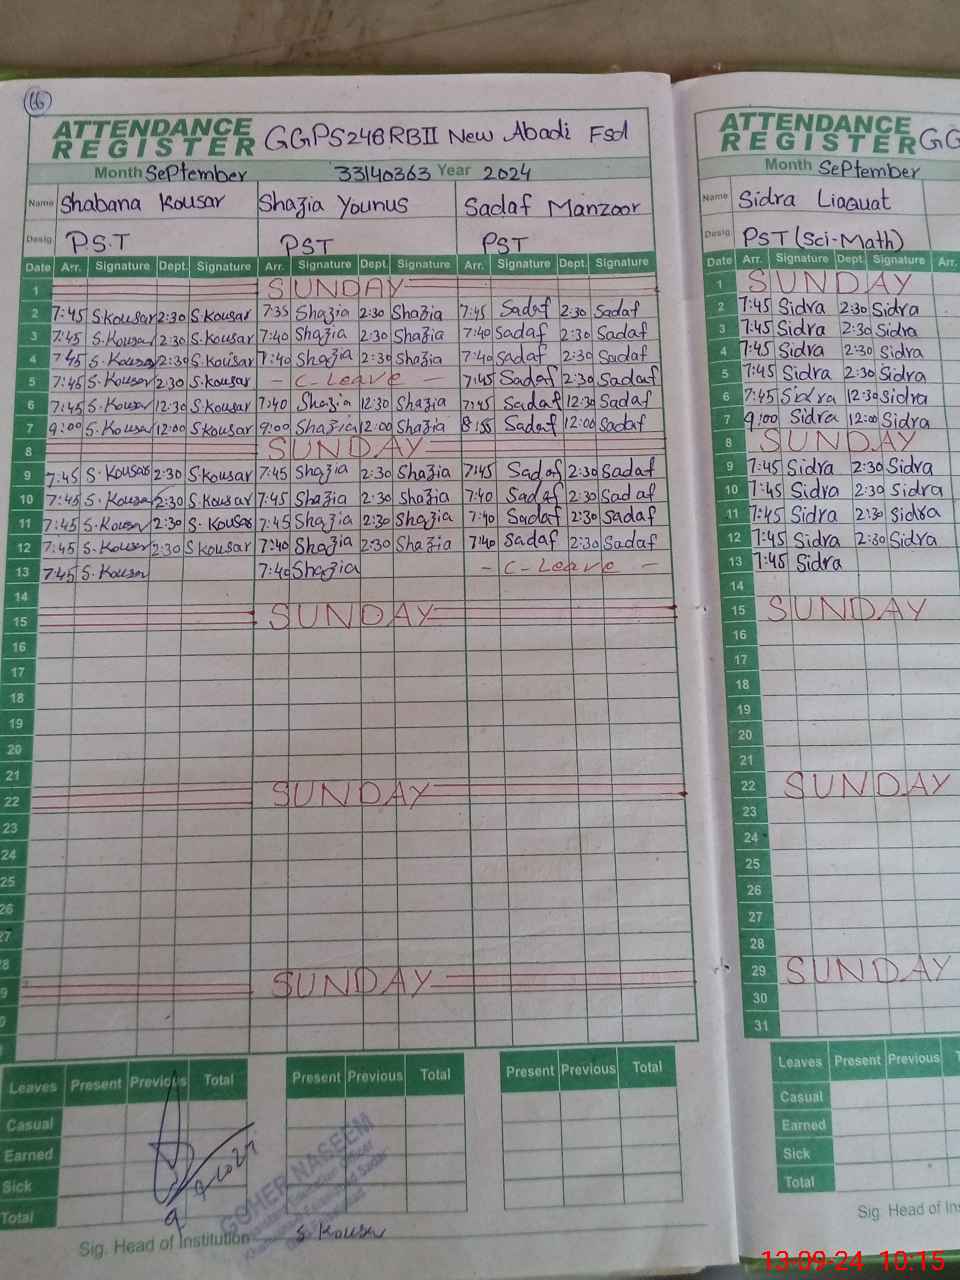 66
ATTENDANCE REGISTER GGPS 248RBII New Abadi Fsd
Month September 33140363 Year 2024
Name Shabana Kousar Shazia Younus Sadaf Manzoor
Desig. P.S.T PST PST
Date Arr. Signature Dept. Signature Arr. Signature Dept. Signature Arr. Signature Dept. Signature
1 SUNDAY
2 7:45 S.Kousar 2:30 S.Kousar 7:35 Shazia 2:30 Shazia 7:45 Sadaf 2:30 Sadaf
3 7:45 S.Kousar 2:30 S.Kousar 7:40 Shazia 2:30 Shazia 7:40 Sadaf 2:30 Sadaf
4 7:45 S.Kousar 2:30 S.Kousar 7:40 Shazia 2:30 Shazia 7:40 Sadaf 2:30 Sadaf
5 7:45 S.Kousar 2:30 S.Kousar - C-Leave - 7:45 Sadaf 2:30 Sadaf
6 7:45 S.Kousar 12:30 S.Kousar 7:40 Shazia 12:30 Shazia 7:45 Sadaf 12:30 Sadaf
7 9:00 S.Kousar 12:00 S.Kousar 9:00 Shazia 12:00 Shazia 8:55 Sadaf 12:00 Sadaf
8 SUNDAY
9 7:45 S.Kousar 2:30 S.Kousar 7:45 Shazia 2:30 Shazia 7:45 Sadaf 2:30 Sadaf
10 7:45 S.Kousar 2:30 S.Kousar 7:45 Shazia 2:30 Shazia 7:40 Sadaf 2:30 Sadaf
11 7:45 S.Kousar 2:30 S.Kousar 7:45 Shazia 2:30 Shazia 7:40 Sadaf 2:30 Sadaf
12 7:45 S.Kousar 2:30 S.Kousar 7:40 Shazia 2:30 Shazia 7:40 Sadaf 2:30 Sadaf
13 7:45 S.Kousar 7:40 Shazia - C-Leave -
14
15 SUNDAY
16
17
18
19
20
21
22 SUNDAY
23
24
25
26
27
28
29 SUNDAY
Leaves Present Previous Total Present Previous Total Present Previous Total
Casual
Earned
Sick
Total
GOHER NASEEM
Sig. Head of Institution S.Kousar
ATTENDANCE REGISTER GG
Month September
Name Sidra Liaquat
Desig. PST (Sci-Math)
Date Arr. Signature Dept. Signature Arr.
1 SUNDAY
2 7:45 Sidra 2:30 Sidra
3 7:45 Sidra 2:30 Sidra
4 7:45 Sidra 2:30 Sidra
5 7:45 Sidra 2:30 Sidra
6 7:45 Sidra 12:30 Sidra
7 9:00 Sidra 12:00 Sidra
8 SUNDAY
9 7:45 Sidra 2:30 Sidra
10 7:45 Sidra 2:30 Sidra
11 7:45 Sidra 2:30 Sidra
12 7:45 Sidra 2:30 Sidra
13 7:45 Sidra
14
15 SUNDAY
16
17
18
19
20
21
22 SUNDAY
23
24
25
26
27
28
29 SUNDAY
30
31
Leaves Present Previous
Casual
Earned
Sick
Total
Sig. Head of Ins
13-09-24 10:15